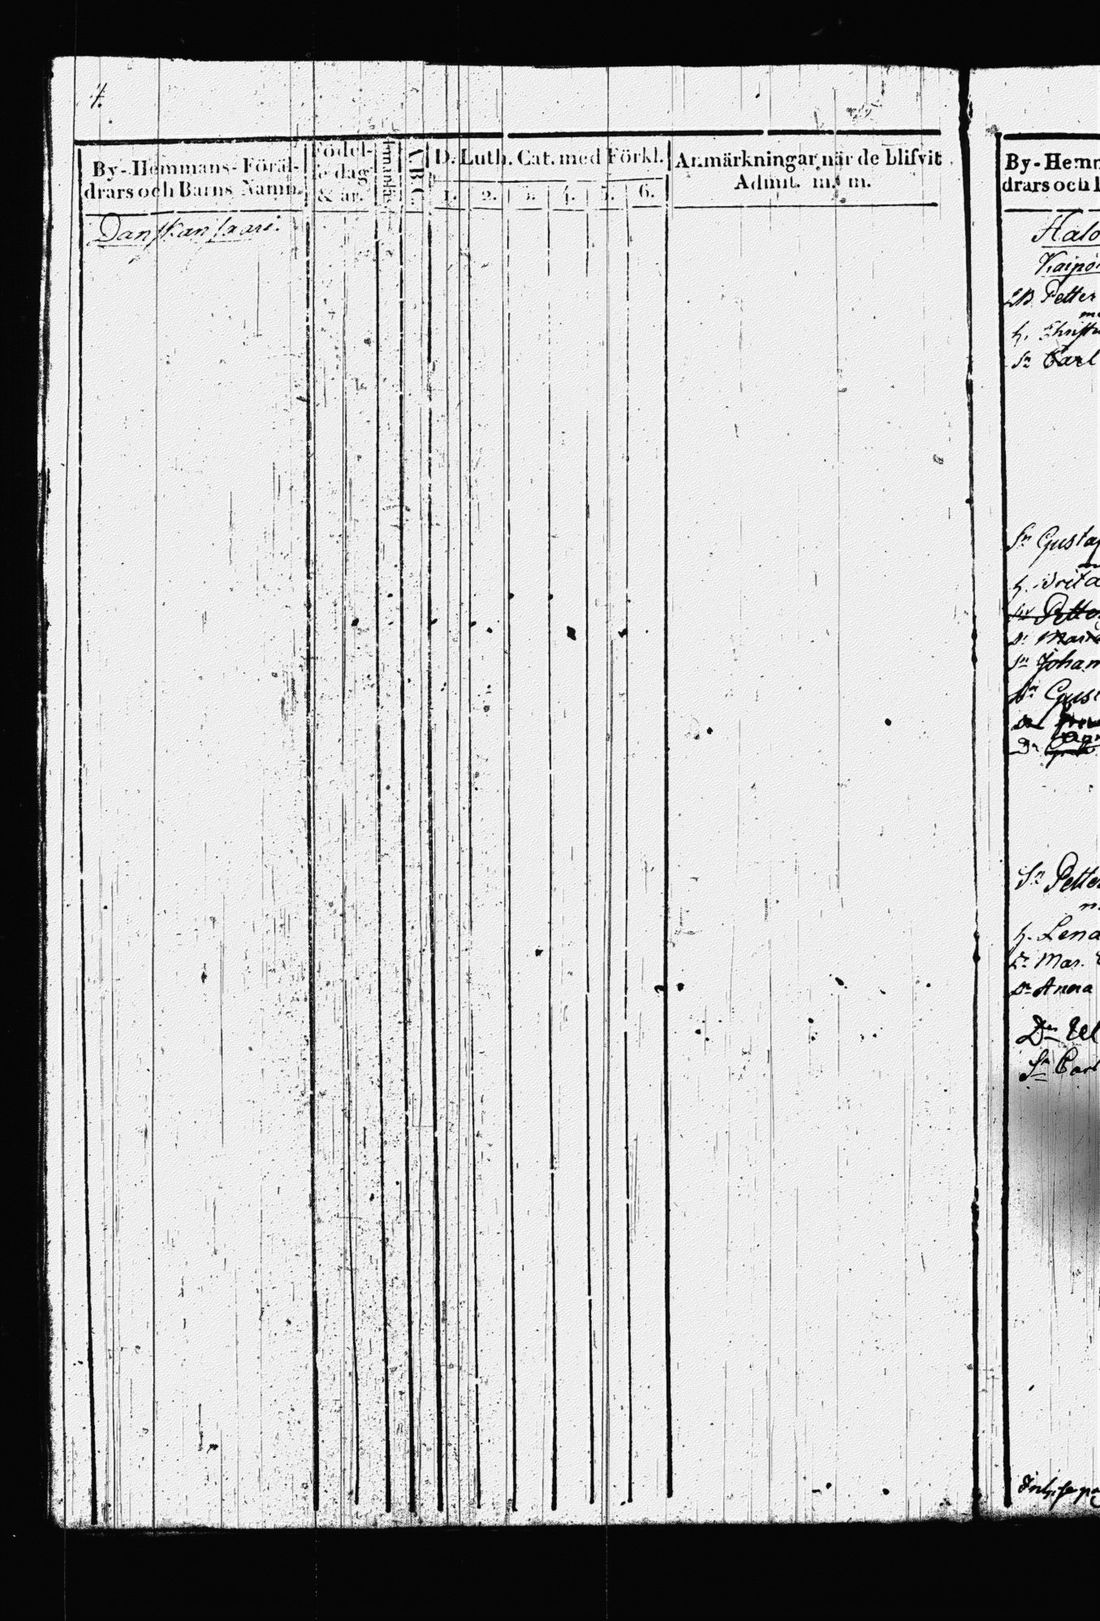 4.
By-Hemmans-Föräl-
drars och Barns Namn.
Födel-
se dag.
& år.
A.B.C.
D. Luth. Cat. med Förkl.
1. 2. 3. 4. 5. 6.
Anmärkningar, när de blifvit
Admit. m. m.
Danskansaari.
By-Hemm
drars och
Halo
Petter
Carl
Sn Gustaf
h. Brita
Petter
Maria
Sn Johan
Gust
Sn Petter
h. Lena
Dr Mar.
Dr Anna
Dr Ul
Sn Carl